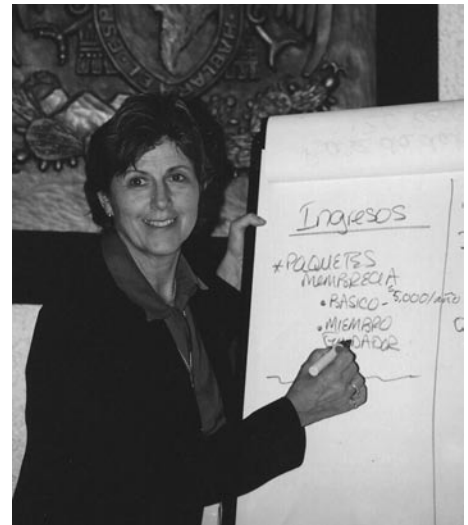 EL ESP
Ingresos
*PAQUETES
MEMBRECIA
• BASICO - $5,000/AÑO
• MIEMBRO
FUNDADOR